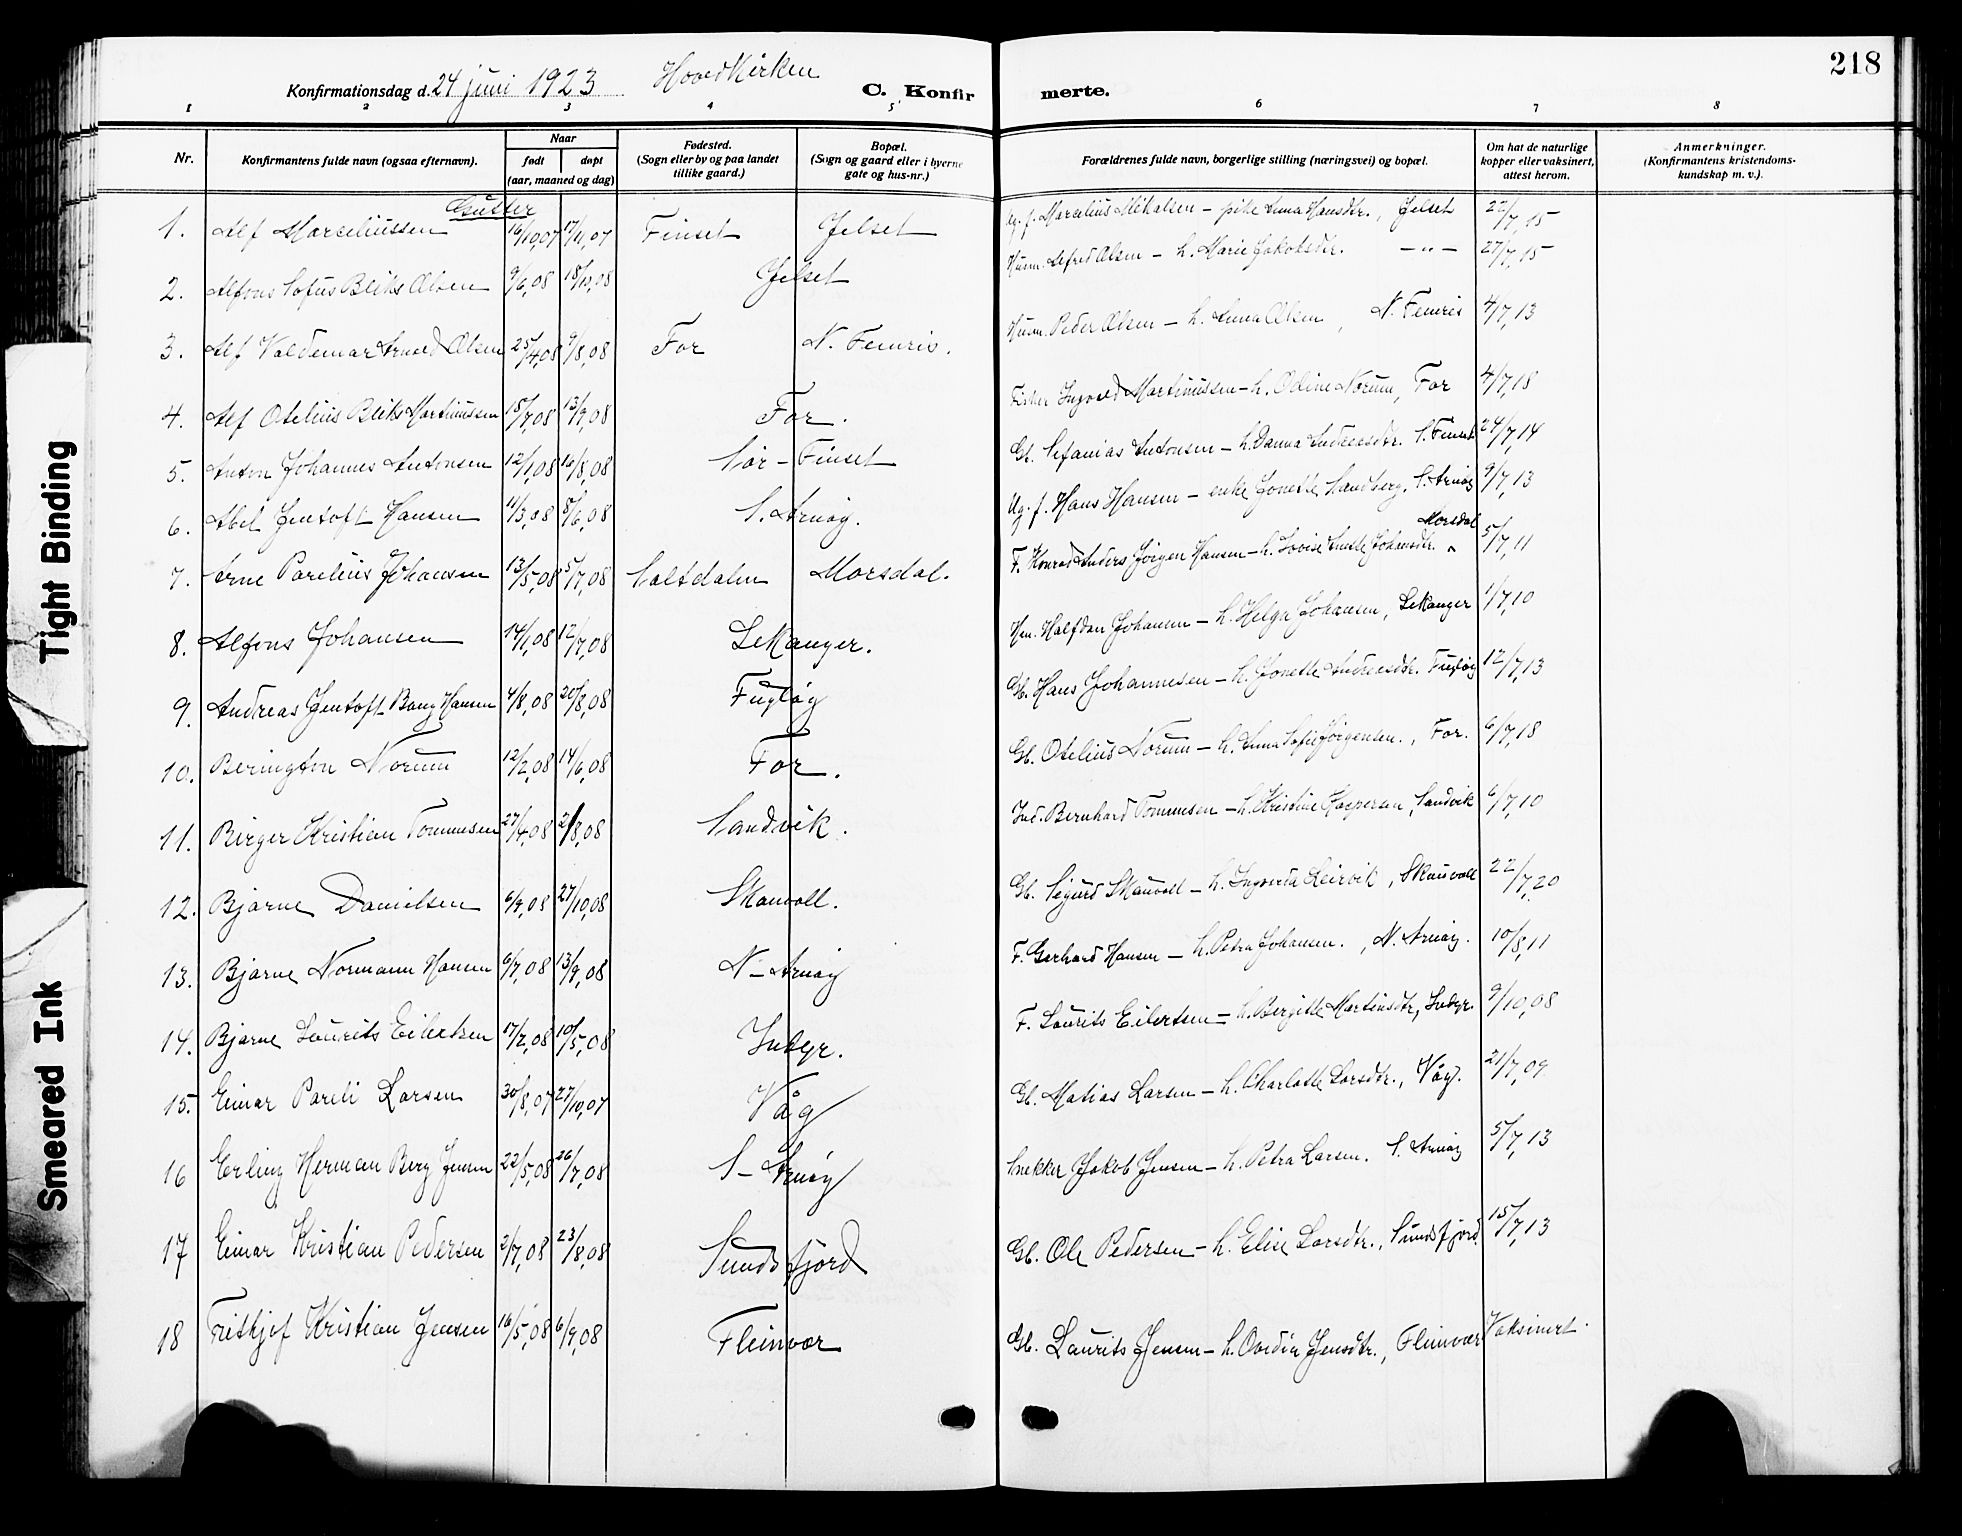 218
Konfirmationsdag d. 24 juni 1923 Hovedkirken C. Konfirmerte.
1 2 3 4 5 6 7 8
Nr. Konfirmantens fulde navn (ogsaa efternavn). Naar født døpt (aar, maaned og dag) Fødested. (Sogn eller by og paa landet tillike gaard.) Bopæl. (Sogn og gaard eller i byerne gate og hus-nr.) Forældrenes fulde navn, borgerlige stilling (næringsvei) og bopæl. Om hat de naturlige kopper eller vaksinert, attest herom. Anmerkninger. (Konfirmantens kristendoms-kundskap m. v.).
Gutter
1. Alf Marceliussen 16/10,07 17/11,07 Finset Jelset Ug. f. Marcelius Mikalsen - pike Anna Hansdtr., Jelset 22/7,15
2. Alfons Sofus Bliks Olsen 9/6,08 18/10,08 Jelset Husm. Alfred Olsen - h. Marie Jakobsdtr. - " - 27/7,15
3. Alf Valdemar Arneld Olsen 25/4,08 9/8,08 For N. Femris. Husm. Peder Olsen - h. Anna Olsen, N. Femris 4/7,13
4. Alf Otelius Bliks Martinussen 18/7,08 13/9,08 For. Fisker Ingvald Martinussen - h. Odine Norum, For 4/7,18
5. Anton Johannes Antonsen 12/1,08 16/8,08 Sør-Finset Gb. Sefanias Antonsen - h. Danna Andreasdtr. S. Finset 24/7,14
6. Abel Jentoft Hansen 11/3,08 8/6,08 S. Arnøy. Ug. f. Hans Hansen - enke Jonette Sandberg, S. Arnøy 9/7,13
7. Arne Parelius Johansen 13/5,08 5/7,08 Saltdalen Morsdal. F. Konrad Anders Jörgen Hansen - h. Lovise Anette Johansdtr. Morsdal 5/7,11
8. Alfons Johansen 14/1,08 12/7,08 Lekanger. Hm. Halfdan Johansen - h. Helga Johansen, Lekanger 1/7,10
9. Andreas Jentoft Bang Hansen 4/8,08 20/8,08 Fugløy Gb. Hans Johannesen - h. Jonette Andreasdtr. Fugløy 12/7,13
10. Berington Norum 12/2,08 14/6,08 For. Gb. Otelius Norum - h. Anna Sofie Jörgensen., For. 6/7,18
11. Birger Kristian Tommesen 27/4,08 2/8,08 Sandvik. Ind. Bernhard Tommesen - h. Kristine Kaspersen, Sandvik 6/7,10
12. Bjarne Danielsen 27/10,08 Skauvoll. Gb. Sigurd Skauvoll - h. Ingverda Leirvik, Skauvoll 22/7,20
13. Bjarne Normann Hansen 6/7,08 13/9,08 N-Arnøy F. Gerhard Hansen - h. Petra Johansen., N. Arnøy. 10/8,11
14. Bjarne Laurits Eilertsen 17/2,08 10/5,08 Indyr. F. Laurits Eilertsen - h. Bergitte Martinsdtr, Indyr. 9/10,08
15. Einar Pareli Larsen 30/8,07 27/10,07 Våg Gb. Matias Larsen - h. Charlotte Larsdtr., Våg. 21/7,09
16 Erling Herman Berg Jensen 22/5,08 26/7,08 S-Arnøy Snekker Jakob Jensen - h. Petra Larsen. S. Arnøy 5/7,13
17 Einar Kristian Pedersen 2/7,08 23/8,08 Sundsfjord Gb. Ole Pedersen - h. Elise Larsdtr., Sundsfjord. 15/7,13
18 Fritkjof Kristian Jensen 16/5,08 6/9,08 Fleinvær Gb. Laurits Jensen - h. Ovidia Jensdtr., Fleinvær Vaksinert.
Tight Binding
Smeared Ink